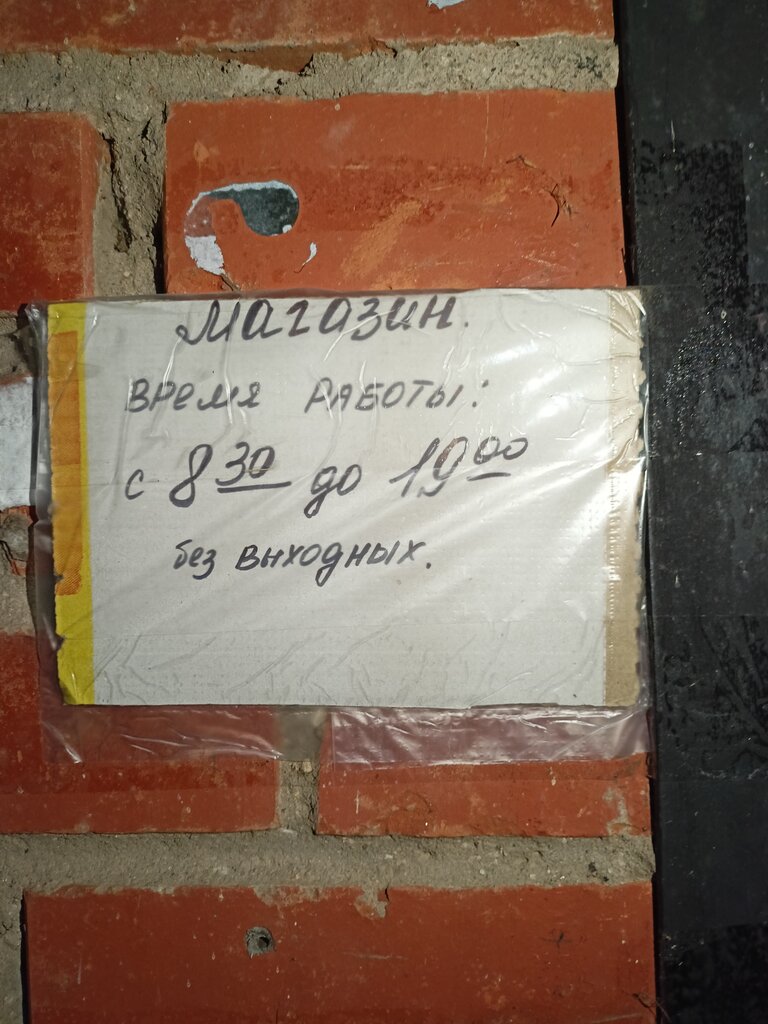 Магазин.
Время работы:
с 8 30 до 19 00
без выходных.